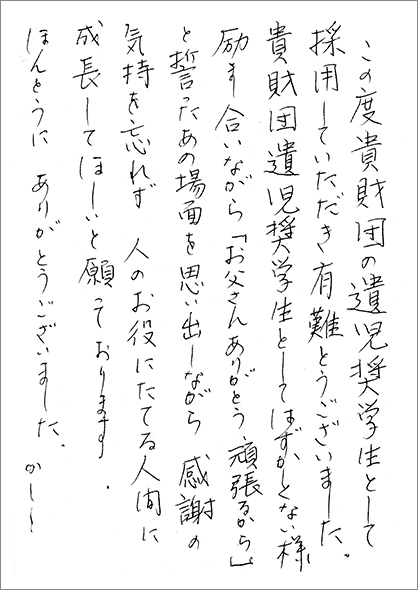 この度貴財団の遺児奨学生として
採用していただき有難とうございました。
貴財団遺児奨学生としてはずかしくない様
励ま合いながら「お父さんありがとう、頑張るから」
と誓ったあの場面を思い出しながら 感謝の
気持を忘れず 人のお役にたてる人間に
成長してほしいと願っております。
ほんとうに ありがとうございました。かしこ